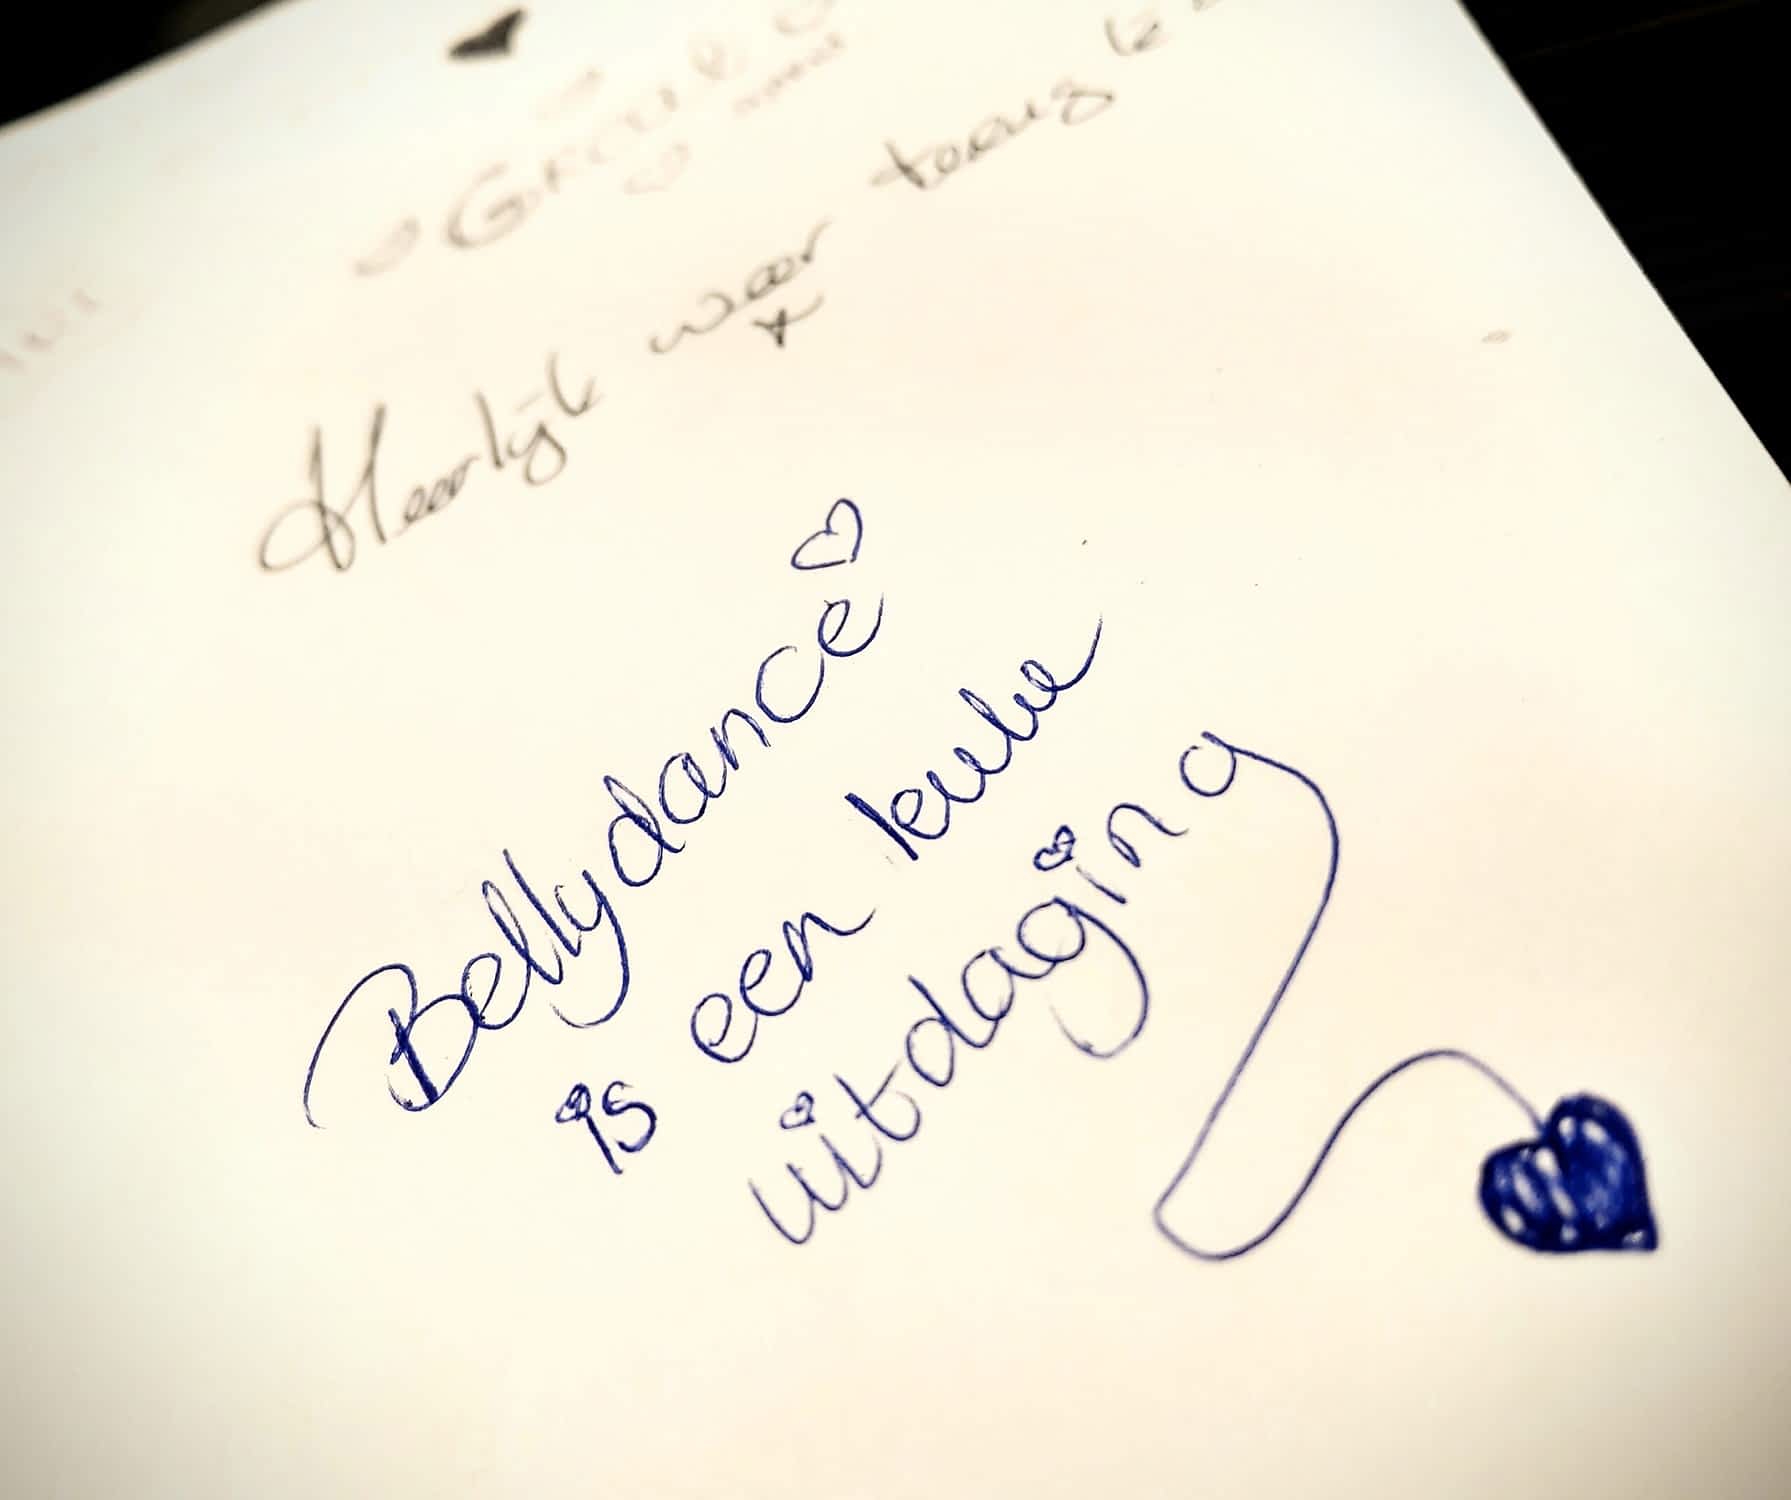 Heerlijk waar terug
Bellydance
is een leuke
uitdaging